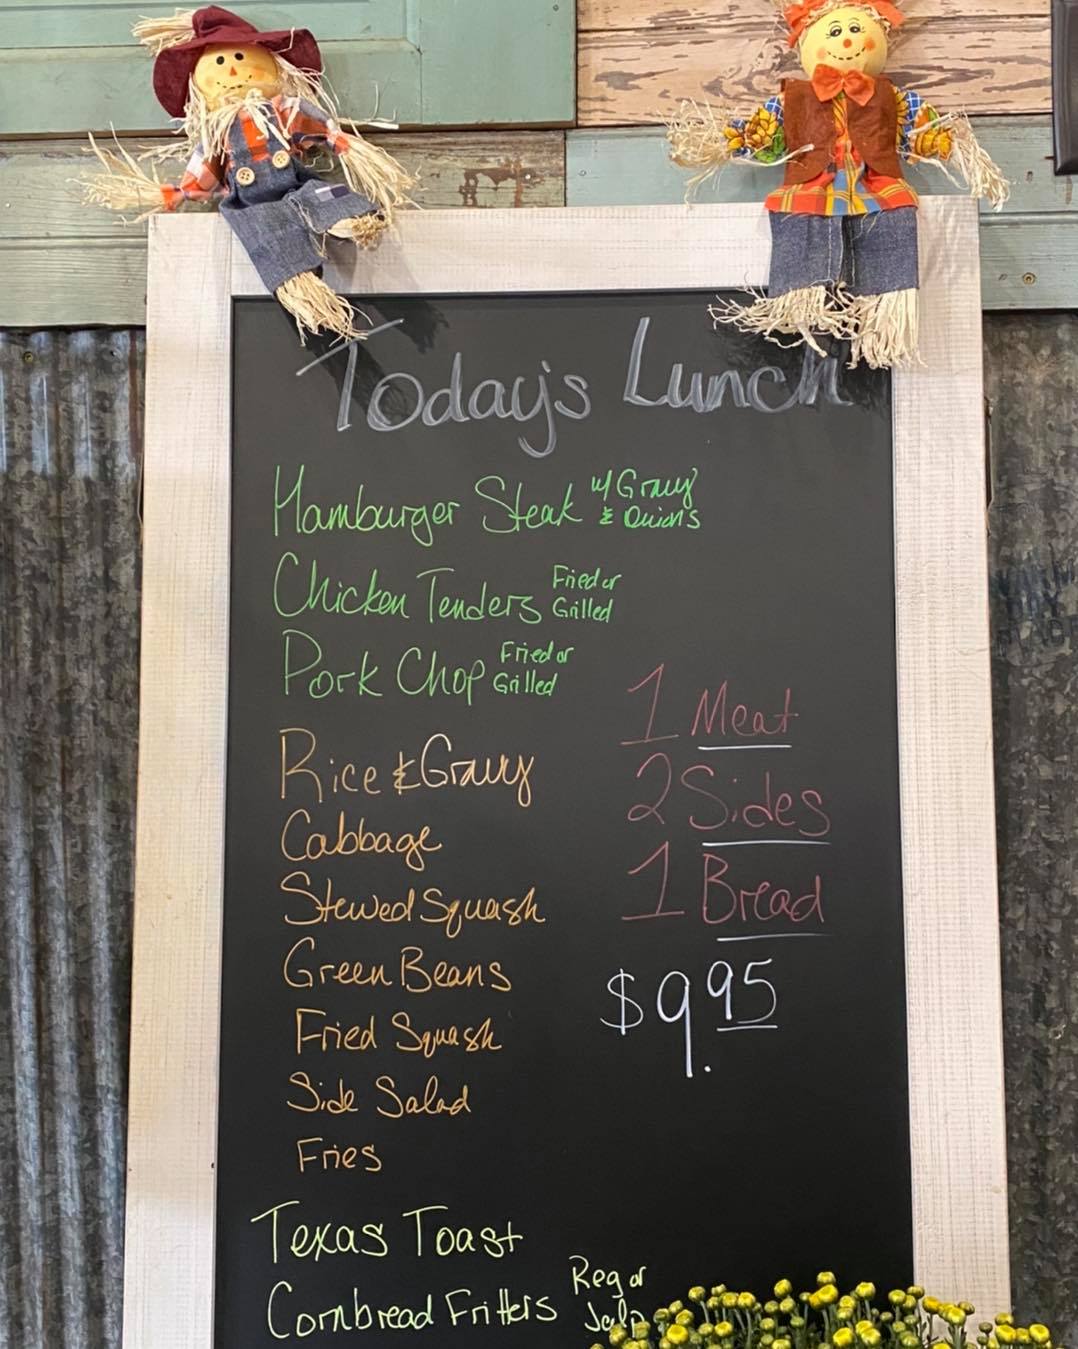 Today's Lunch
Hamburger Steak w/ Gravy & Onions
Chicken Tenders Fried or Grilled
Pork Chop Fried or Grilled
1 Meat
2 Sides
1 Bread
$9.95
Rice & Gravy
Cabbage
Stewed Squash
Green Beans
Fried Squash
Side Salad
Fries
Texas Toast
Cornbread Fritters Reg or Jalp